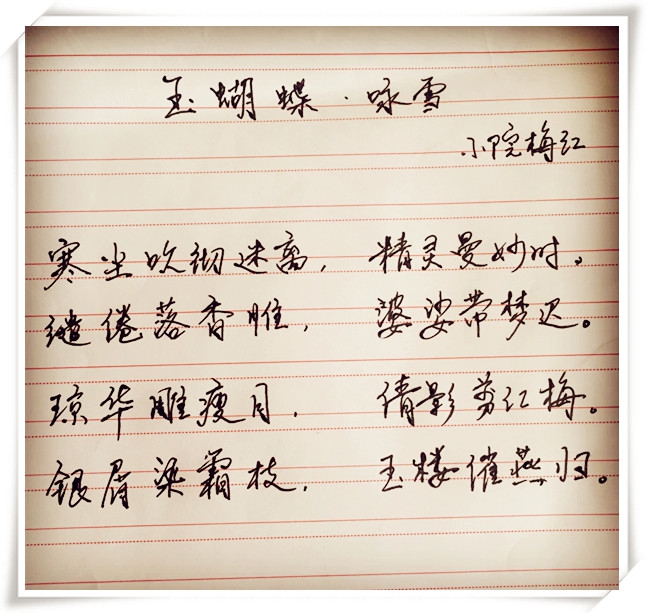 玉蝴蝶·咏雪
小院梅红
寒尘吹砌迷离， 精灵曼妙时。
缱绻落香帷， 婆娑带梦迟。
琼华雕瘦月， 倩影剪红梅。
银屑染霜枝， 玉楼催燕归。